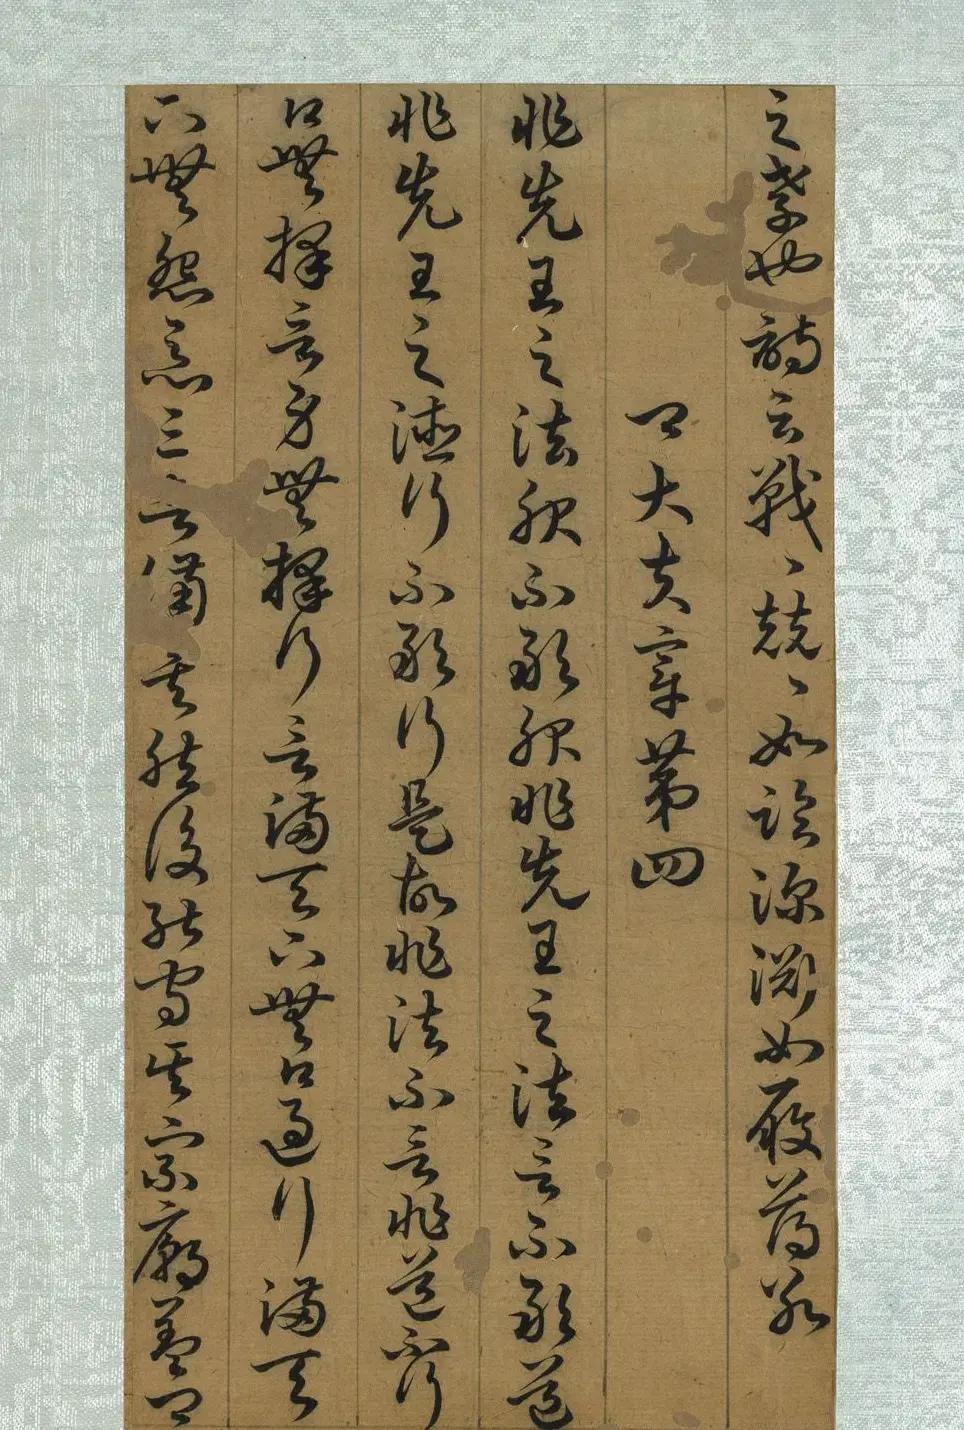 之孝也詩云戰〻兢〻如臨深淵如履薄冰
卿大夫章第四
非先王之法服不敢服非先王之法言不敢道
非先王之德行不敢行是故非法不言非道不行
口無擇言身無擇行言滿天下無口過行滿天
下無怨惡三者備矣然後能守其宗廟蓋卿